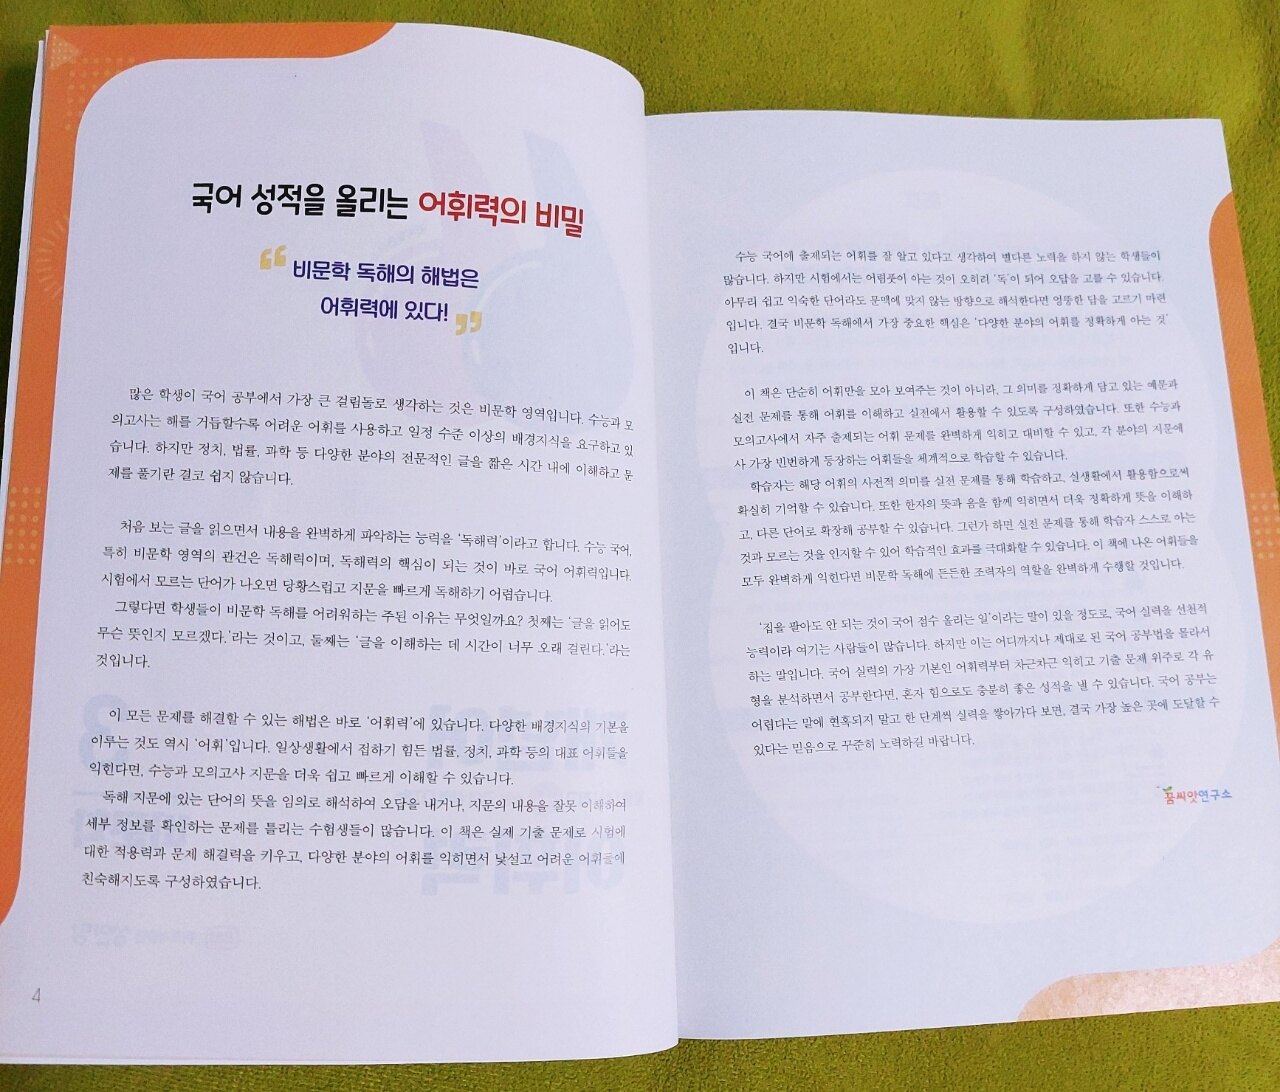 국어 성적을 올리는 어휘력의 비밀
“ 비문학 독해의 해법은
어휘력에 있다! ”
많은 학생이 국어 공부에서 가장 큰 걸림돌로 생각하는 것은 비문학 영역입니다. 수능과 모
의고사는 해를 거듭할수록 어려운 어휘를 사용하고 일정 수준 이상의 배경지식을 요구하고 있
습니다. 하지만 정치, 법률, 과학 등 다양한 분야의 전문적인 글을 짧은 시간 내에 이해하고 문
제를 풀기란 결코 쉽지 않습니다.
처음 보는 글을 읽으면서 내용을 완벽하게 파악하는 능력을 ‘독해력’이라고 합니다. 수능 국어,
특히 비문학 영역의 관건은 독해력이며, 독해력의 핵심이 되는 것이 바로 국어 어휘력입니다.
시험에서 모르는 단어가 나오면 당황스럽고 지문을 빠르게 독해하기 어렵습니다.
그렇다면 학생들이 비문학 독해를 어려워하는 주된 이유는 무엇일까요? 첫째는 ‘글을 읽어도
무슨 뜻인지 모르겠다.’라는 것이고, 둘째는 ‘글을 이해하는 데 시간이 너무 오래 걸린다.’라는
것입니다.
이 모든 문제를 해결할 수 있는 해법은 바로 ‘어휘력’에 있습니다. 다양한 배경지식의 기본을
이루는 것도 역시 ‘어휘’입니다. 일상생활에서 접하기 힘든 법률, 정치, 과학 등의 대표 어휘들을
익힌다면, 수능과 모의고사 지문을 더욱 쉽고 빠르게 이해할 수 있습니다.
독해 지문에 있는 단어의 뜻을 임의로 해석하여 오답을 내거나, 지문의 내용을 잘못 이해하여
세부 정보를 확인하는 문제를 틀리는 수험생들이 많습니다. 이 책은 실제 기출 문제로 시험에
대한 적용력과 문제 해결력을 키우고, 다양한 분야의 어휘를 익히면서 낯설고 어려운 어휘들에
친숙해지도록 구성하였습니다.
4
수능 국어에 출제되는 어휘를 잘 알고 있다고 생각하여 별다른 노력을 하지 않는 학생들이
많습니다. 하지만 시험에서는 어렴풋이 아는 것이 오히려 ‘독’이 되어 오답을 고를 수 있습니다.
아무리 쉽고 익숙한 단어라도 문맥에 맞지 않는 방향으로 해석한다면 엉뚱한 답을 고르기 마련
입니다. 결국 비문학 독해에서 가장 중요한 핵심은 ‘다양한 분야의 어휘를 정확하게 아는 것’
입니다.
이 책은 단순히 어휘만을 모아 보여주는 것이 아니라, 그 의미를 정확하게 담고 있는 예문과
실전 문제를 통해 어휘를 이해하고 실전에서 활용할 수 있도록 구성하였습니다. 또한 수능과
모의고사에서 자주 출제되는 어휘 문제를 완벽하게 익히고 대비할 수 있고, 각 분야의 지문에
사 가장 빈번하게 등장하는 어휘들을 체계적으로 학습할 수 있습니다.
학습자는 해당 어휘의 사전적 의미를 실전 문제를 통해 학습하고, 실생활에서 활용함으로써
확실히 기억할 수 있습니다. 또한 한자의 뜻과 음을 함께 익히면서 더욱 정확하게 뜻을 이해하
고, 다른 단어로 확장해 공부할 수 있습니다. 그런가 하면 실전 문제를 통해 학습자 스스로 아는
것과 모르는 것을 인지할 수 있어 학습적인 효과를 극대화할 수 있습니다. 이 책에 나온 어휘들을
모두 완벽하게 익힌다면 비문학 독해에 든든한 조력자의 역할을 완벽하게 수행할 것입니다.
‘집을 팔아도 안 되는 것이 국어 점수 올리는 일’이라는 말이 있을 정도로, 국어 실력을 선천적
능력이라 여기는 사람들이 많습니다. 하지만 이는 어디까지나 제대로 된 국어 공부법을 몰라서
하는 말입니다. 국어 실력의 가장 기본인 어휘력부터 차근차근 익히고 기출 문제 위주로 각 유
형을 분석하면서 공부한다면, 혼자 힘으로도 충분히 좋은 성적을 낼 수 있습니다. 국어 공부는
어렵다는 말에 현혹되지 말고 한 단계씩 실력을 쌓아가다 보면, 결국 가장 높은 곳에 도달할 수
있다는 믿음으로 꾸준히 노력하길 바랍니다.
꿈씨앗연구소